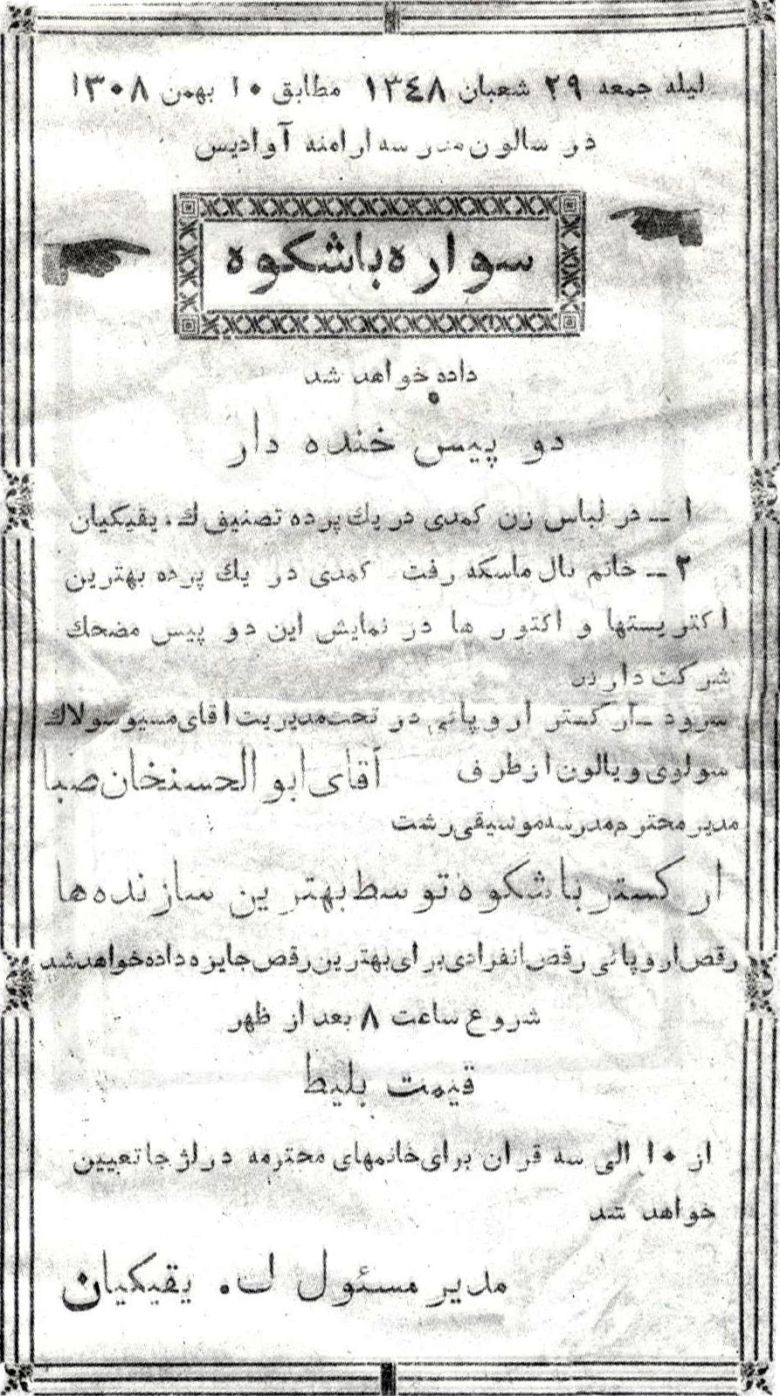 لیله جمعه ۲۹ شعبان ۱۳٤۸ مطابق ۱۰ بهمن ۱۳۰۸
در سالون مدرسه ارامنه آوادیس
سواره باشکوه
داده خواهد شد
دو پیس خنده دار
۱ ــ در لباس زن کمدی در یك پرده تصنیف ك. یقیکیان
۲ ــ خانم بال ماسکه رفت کمدی در یك پرده بهترین
اکتریستها و اکتور ها در نمایش این دو پیس مضحك
شرکت دارند
سرود ــ ارکستر اروپائی در تحت مدیریت اقای مسیو سولاك
سولوی ویالون از طرف آقای ابوالحسنخان صبا
مدیر محترم مدرسه موسیقی رشت
ارکستر باشکوه توسط بهترین سازنده ها
رقص اروپائی رقص انفرادی برای بهترین رقص جایزه داده خواهد شد
شروع ساعت ۸ بعد از ظهر
قیمت بلیط
از ۱۰ الی سه قران برای خانمهای محترمه در لژ جا تعیین
خواهد شد
مدیر مسئول . یقیکیان